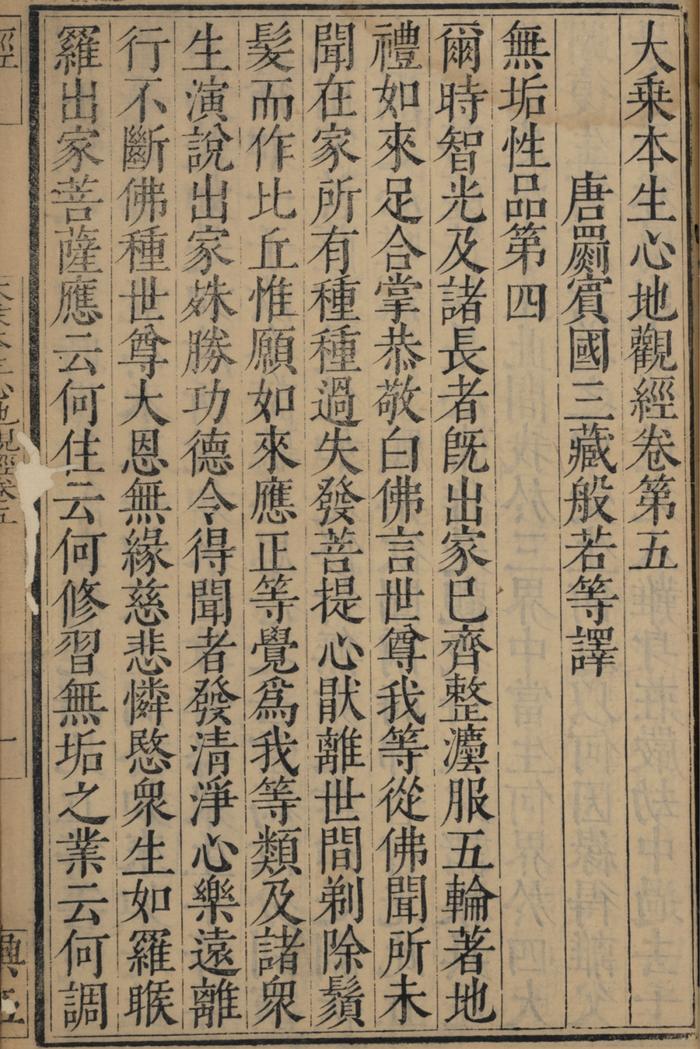 大乗本生心地觀經卷第五
唐罽賓國三藏般若等譯
無垢性品第四
爾時智光及諸長者旣出家已齊整灋服五輪著地
禮如來足合掌恭敬白佛言世尊我等從佛聞所未
聞在家所有種種過失發菩提心猒離世間剃除鬚
髮而作比丘惟願如來應正等覺爲我等類及諸衆
生演說出家殊勝功德令得聞者發清淨心樂遠離
行不斷佛種世尊大恩無緣慈悲憐愍衆生如羅睺
羅出家菩薩應云何住云何修習無垢之業云何調